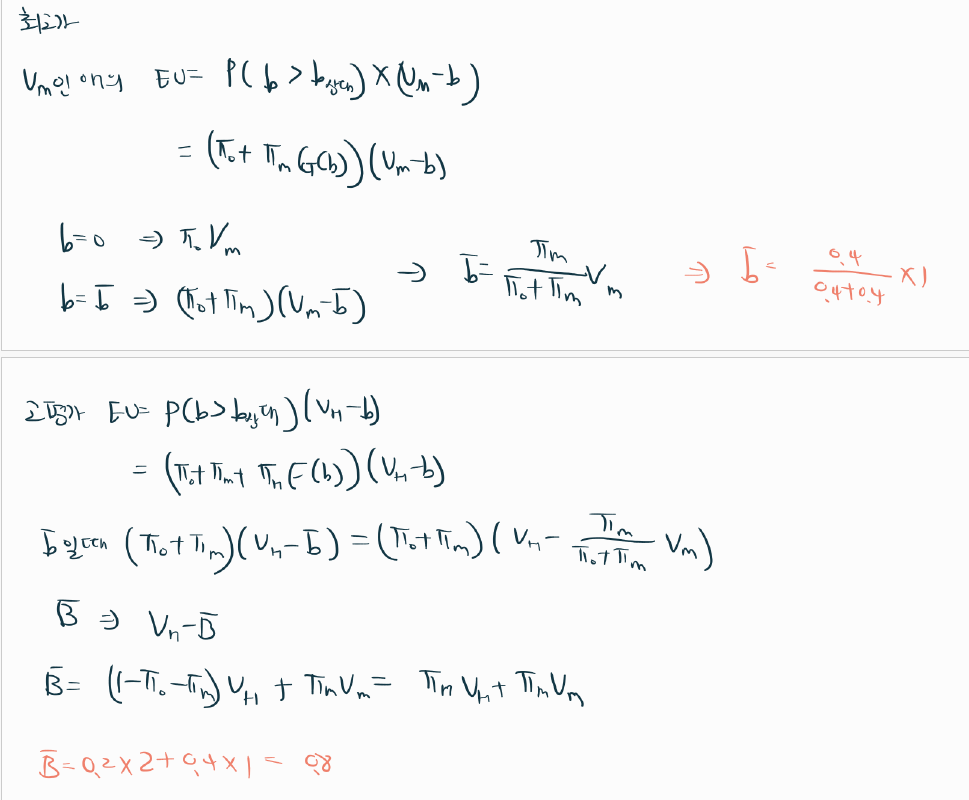 최고가
Vm인 애의 EU = P(b > b상대) × (Vm-b)
= (π₀ + πm G(b))(Vm-b)
b=0 ⇒ π₀Vm
b=b̄ ⇒ (π₀+πm)(Vm-b̄) → b̄ = πm/(π₀+πm) Vm ⇒ b̄ = 0.4/(0.4+0.4) × 1
EU = P(b>b상대)(VH-b)
= (π₀+πm+πH F(b))(VH-b)
b̄일때 (π₀+πm)(VH-b̄) = (π₀+πm)(VH - πm/(π₀+πm) Vm)
B̄ ⇒ VH-B̄
B̄ = (1-π₀-πm)VH + πmVm = πHVH + πmVm
B̄ = 0.2×2+0.4×1 = 0.8